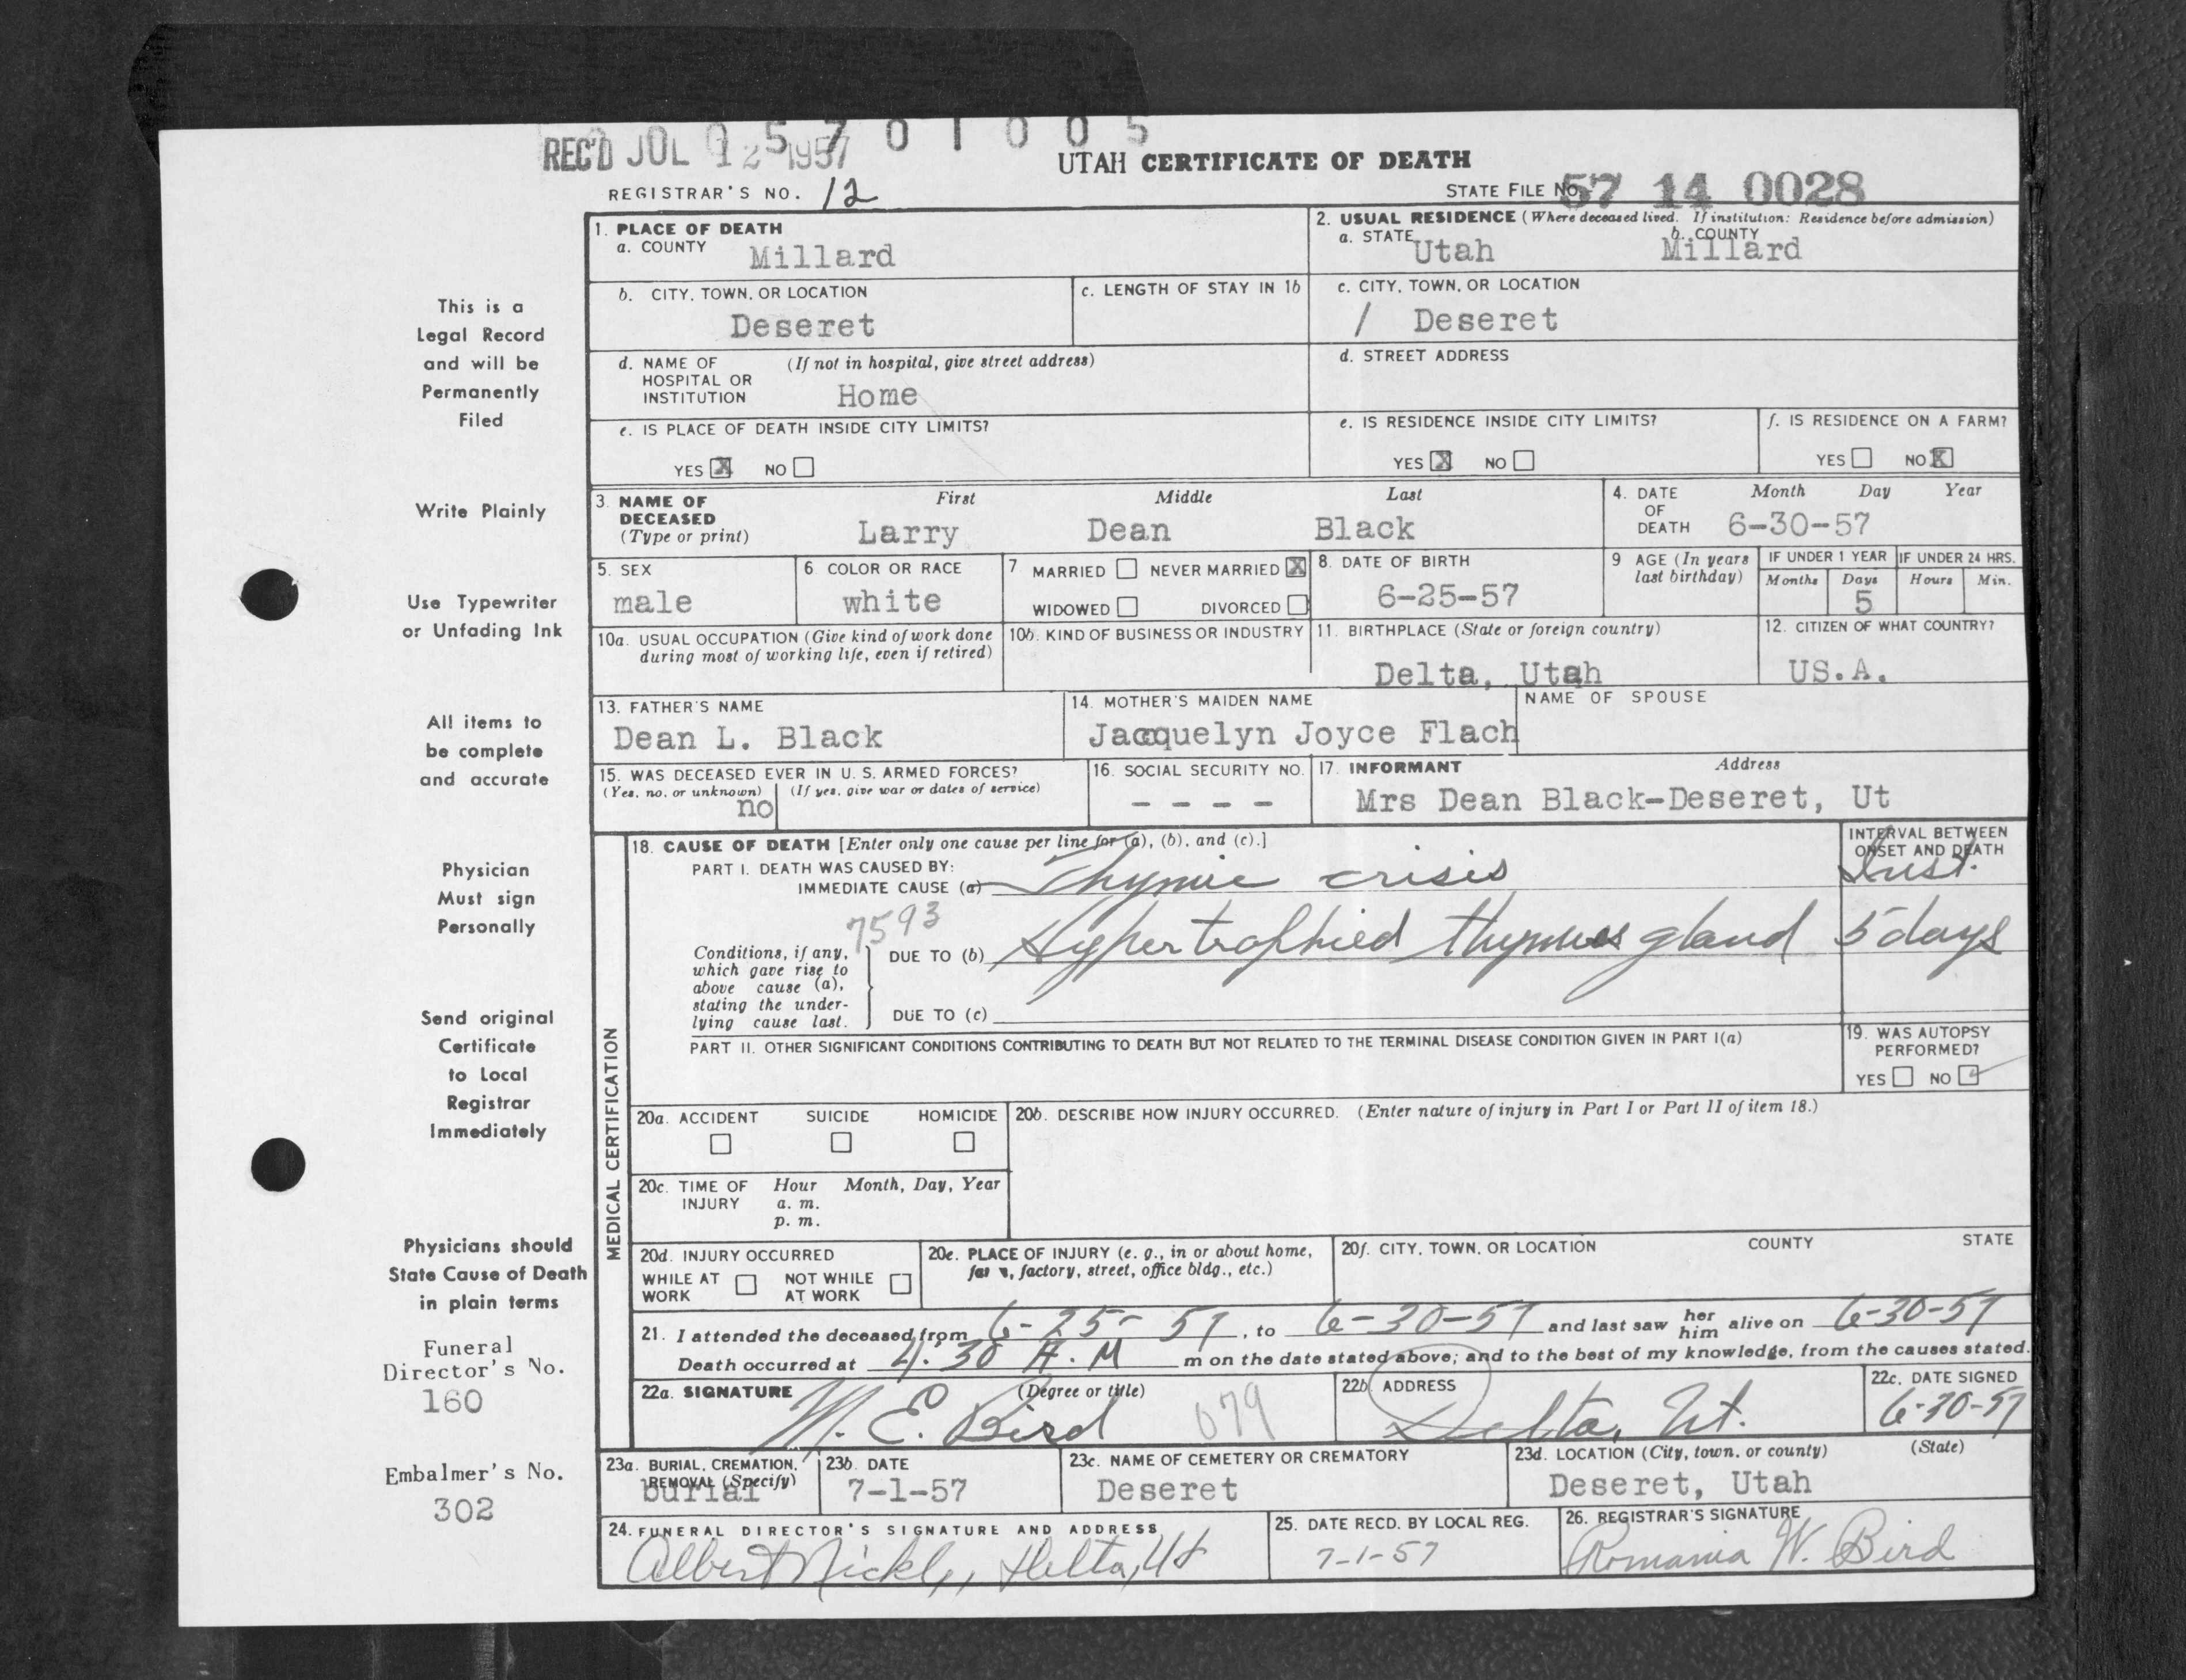 REC'D JUL 12 1957
5 7 0 1 0 0 5
UTAH CERTIFICATE OF DEATH
REGISTRAR'S NO. 12
STATE FILE No. 57 14 0028
This is a
Legal Record
and will be
Permanently
Filed
Write Plainly
Use Typewriter
or Unfading Ink
All items to
be complete
and accurate
Physician
Must sign
Personally
Send original
Certificate
to Local
Registrar
Immediately
Physicians should
State Cause of Death
in plain terms
Funeral
Director's No.
160
Embalmer's No.
302
1. PLACE OF DEATH
a. COUNTY Millard
2. USUAL RESIDENCE (Where deceased lived. If institution: Residence before admission)
a. STATE Utah b. COUNTY Millard
b. CITY, TOWN, OR LOCATION
Deseret
c. LENGTH OF STAY IN 1b
c. CITY, TOWN, OR LOCATION
/ Deseret
d. NAME OF HOSPITAL OR INSTITUTION (If not in hospital, give street address)
Home
d. STREET ADDRESS
e. IS PLACE OF DEATH INSIDE CITY LIMITS?
YES X NO
e. IS RESIDENCE INSIDE CITY LIMITS?
YES X NO
f. IS RESIDENCE ON A FARM?
YES NO X
3. NAME OF DECEASED (Type or print)
First Middle Last
Larry Dean Black
4. DATE OF DEATH Month Day Year
6-30-57
5. SEX
male
6 COLOR OR RACE
white
7 MARRIED NEVER MARRIED X
WIDOWED DIVORCED
8. DATE OF BIRTH
6-25-57
9 AGE (In years last birthday)
IF UNDER 1 YEAR IF UNDER 24 HRS.
Months Days Hours Min.
5
10a. USUAL OCCUPATION (Give kind of work done during most of working life, even if retired)
10b. KIND OF BUSINESS OR INDUSTRY
11. BIRTHPLACE (State or foreign country)
Delta, Utah
12. CITIZEN OF WHAT COUNTRY?
US.A.
13. FATHER'S NAME
Dean L. Black
14. MOTHER'S MAIDEN NAME
Jacquelyn Joyce Flach
NAME OF SPOUSE
15. WAS DECEASED EVER IN U. S. ARMED FORCES?
(Yes, no, or unknown) (If yes, give war or dates of service)
no
16. SOCIAL SECURITY NO.
- - - -
17. INFORMANT Address
Mrs Dean Black-Deseret, Ut
MEDICAL CERTIFICATION
18. CAUSE OF DEATH [Enter only one cause per line for (a), (b), and (c).]
INTERVAL BETWEEN ONSET AND DEATH
PART I. DEATH WAS CAUSED BY:
IMMEDIATE CAUSE (a) Thymic crisis Inst.
7593
Conditions, if any, which gave rise to above cause (a), stating the underlying cause last.
DUE TO (b) Hypertrophied thymus gland 5 days
DUE TO (c)
PART II. OTHER SIGNIFICANT CONDITIONS CONTRIBUTING TO DEATH BUT NOT RELATED TO THE TERMINAL DISEASE CONDITION GIVEN IN PART I(a)
19. WAS AUTOPSY PERFORMED?
YES NO ✓
20a. ACCIDENT SUICIDE HOMICIDE
20b. DESCRIBE HOW INJURY OCCURRED. (Enter nature of injury in Part I or Part II of item 18.)
20c. TIME OF INJURY Hour Month, Day, Year
a. m.
p. m.
20d. INJURY OCCURRED
WHILE AT WORK NOT WHILE AT WORK
20e. PLACE OF INJURY (e. g., in or about home, farm, factory, street, office bldg., etc.)
20f. CITY, TOWN, OR LOCATION COUNTY STATE
21. I attended the deceased from 6-25-57, to 6-30-57 and last saw her him alive on 6-30-57
Death occurred at 4:30 A.M m on the date stated above; and to the best of my knowledge, from the causes stated.
22a. SIGNATURE (Degree or title)
M. E. Bird 079
22b. ADDRESS
Delta, Ut.
22c. DATE SIGNED
6-30-57
23a. BURIAL, CREMATION, REMOVAL (Specify)
burial
23b. DATE
7-1-57
23c. NAME OF CEMETERY OR CREMATORY
Deseret
23d. LOCATION (City, town, or county) (State)
Deseret, Utah
24. FUNERAL DIRECTOR'S SIGNATURE AND ADDRESS
Albert Nickle, Delta, Ut
25. DATE RECD. BY LOCAL REG.
7-1-57
26. REGISTRAR'S SIGNATURE
Romania W. Bird